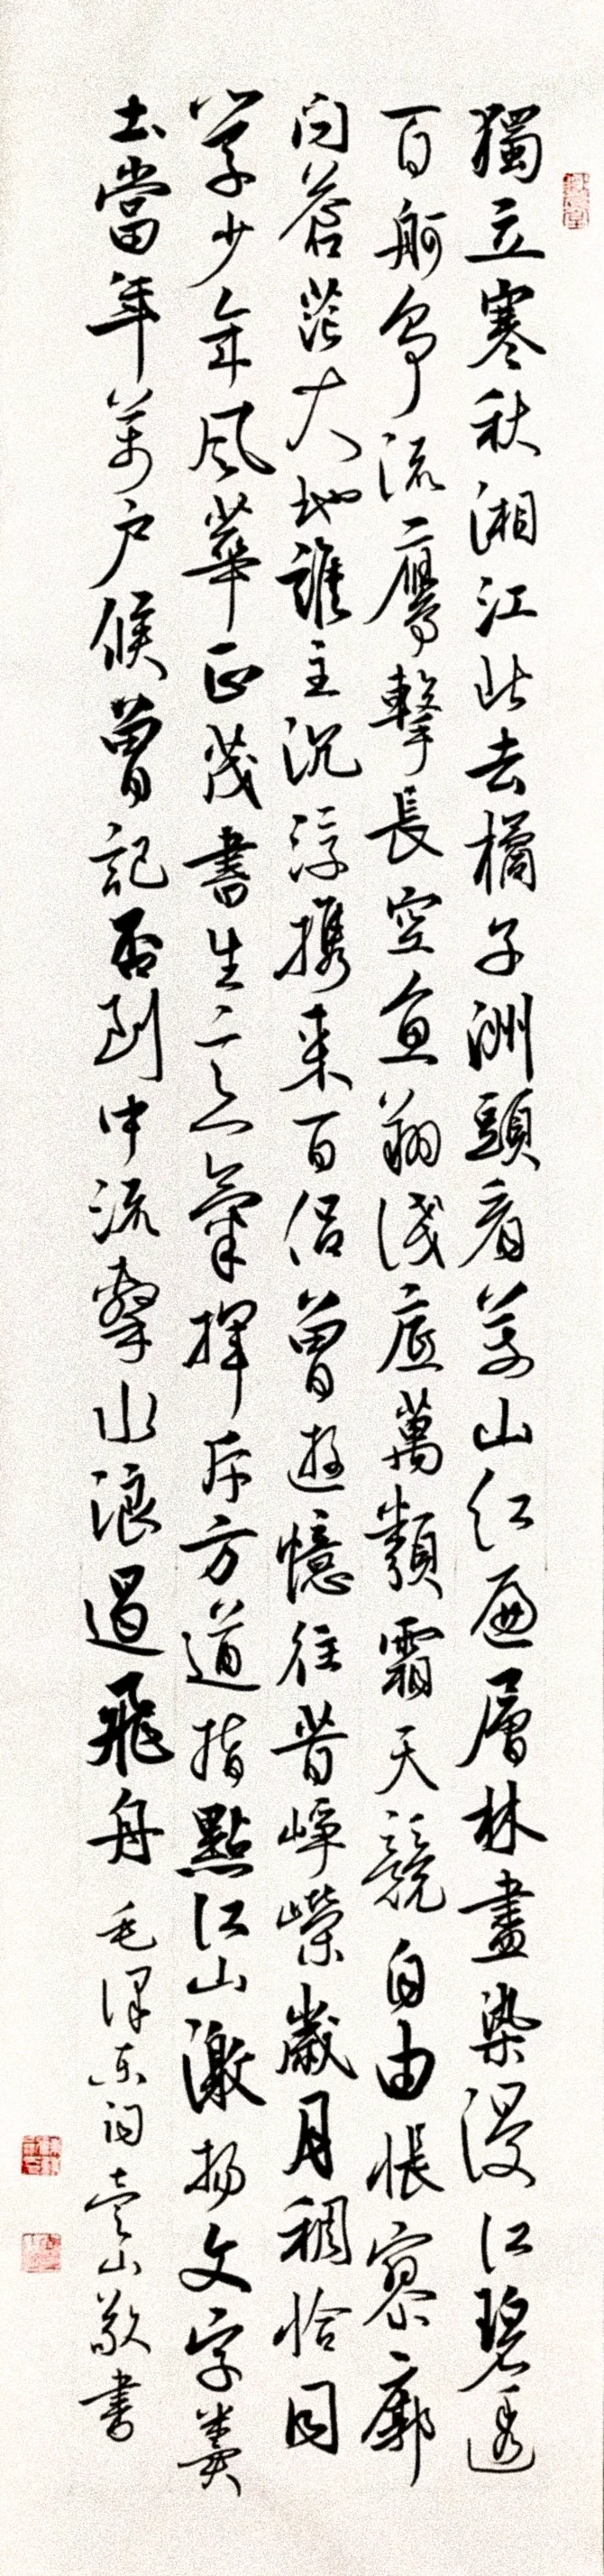 獨立寒秋湘江北去橘子洲頭看萬山紅遍層林盡染漫江碧透
百舸爭流鷹擊長空魚翔淺底萬類霜天競自由悵寥廓
問蒼茫大地誰主沉浮攜來百侶曾遊憶往昔崢嶸歲月稠恰同
學少年風華正茂書生意氣揮斥方遒指點江山激揚文字糞
土當年萬戶候曾記否到中流擊水浪遏飛舟 毛澤東詞 山敬書